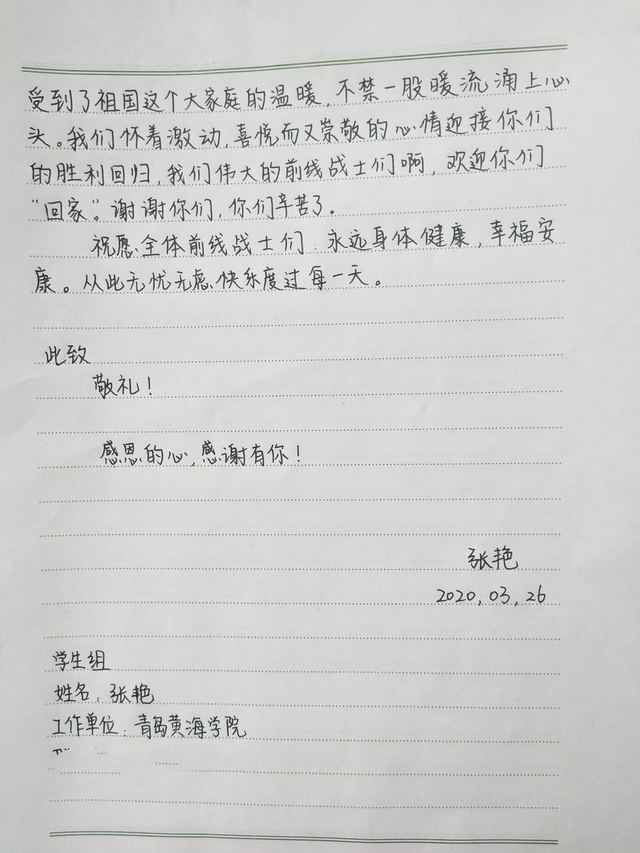 受到了祖国这个大家庭的温暖,不禁一股暖流涌上心
头。我们怀着激动,喜悦而又崇敬的心情迎接你们
的胜利回归,我们伟大的前线战士们啊,欢迎你们
“回家”。谢谢你们,你们辛苦了。
祝愿全体前线战士们:永远身体健康,幸福安
康。从此无忧无虑快乐度过每一天。
此致
敬礼!
感恩的心,感谢有你!
张艳
2020,03,26
学生组
姓名:张艳
工作单位:青岛黄海学院